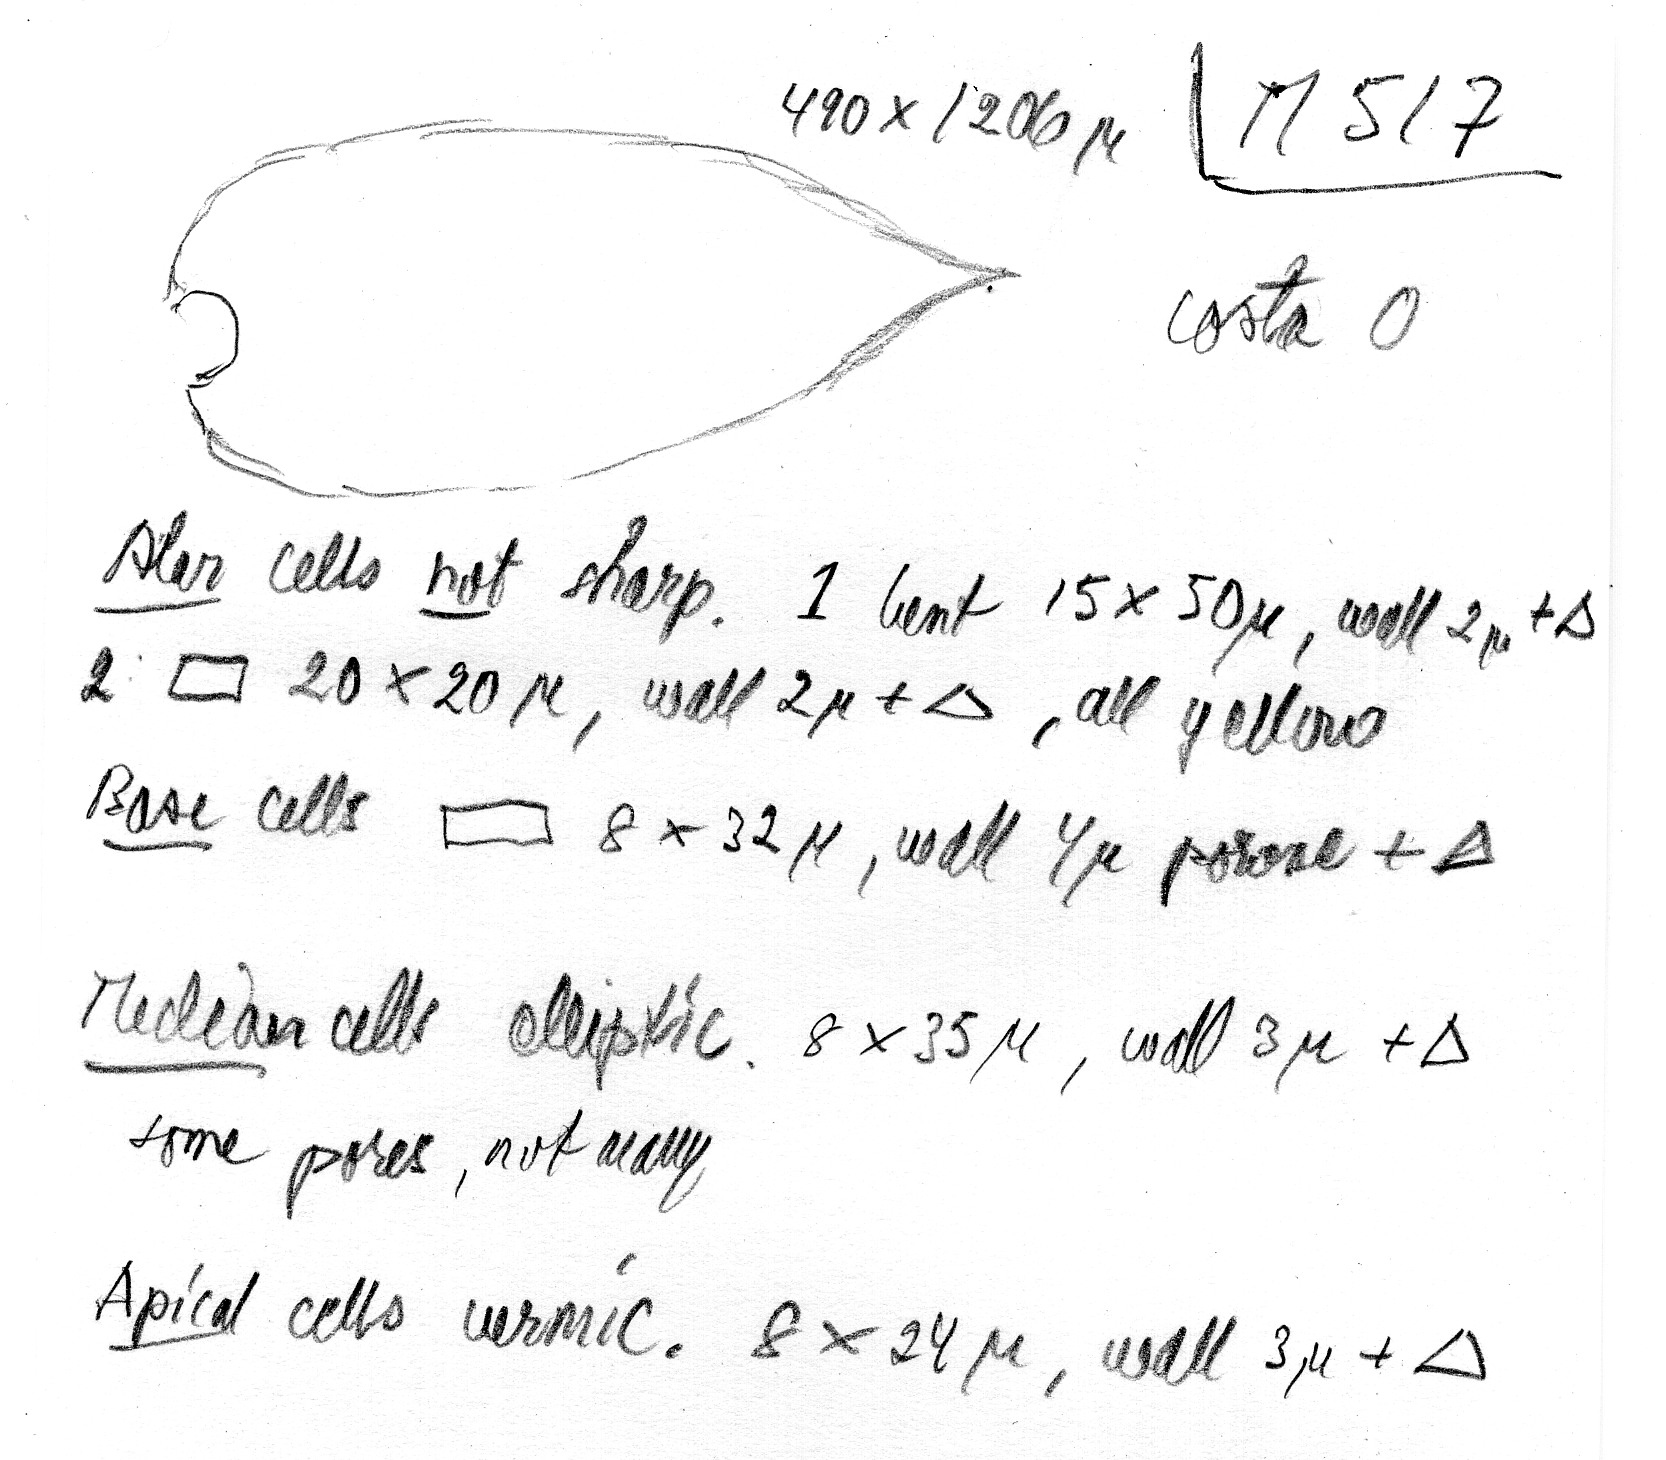 490 x 1206 μ M 517
costa 0
Alar cells not sharp. 1 bent 15 x 50 μ, wall 2 μ + Δ
2: ▭ 20 x 20 μ, wall 2 μ + Δ, all yellow
Base cells ▭ 8 x 32 μ, wall 4 μ porose + Δ
Median cells elliptic. 8 x 35 μ, wall 3 μ + Δ
some pores, not many
Apical cells vermic. 8 x 24 μ, wall 3 μ + Δ